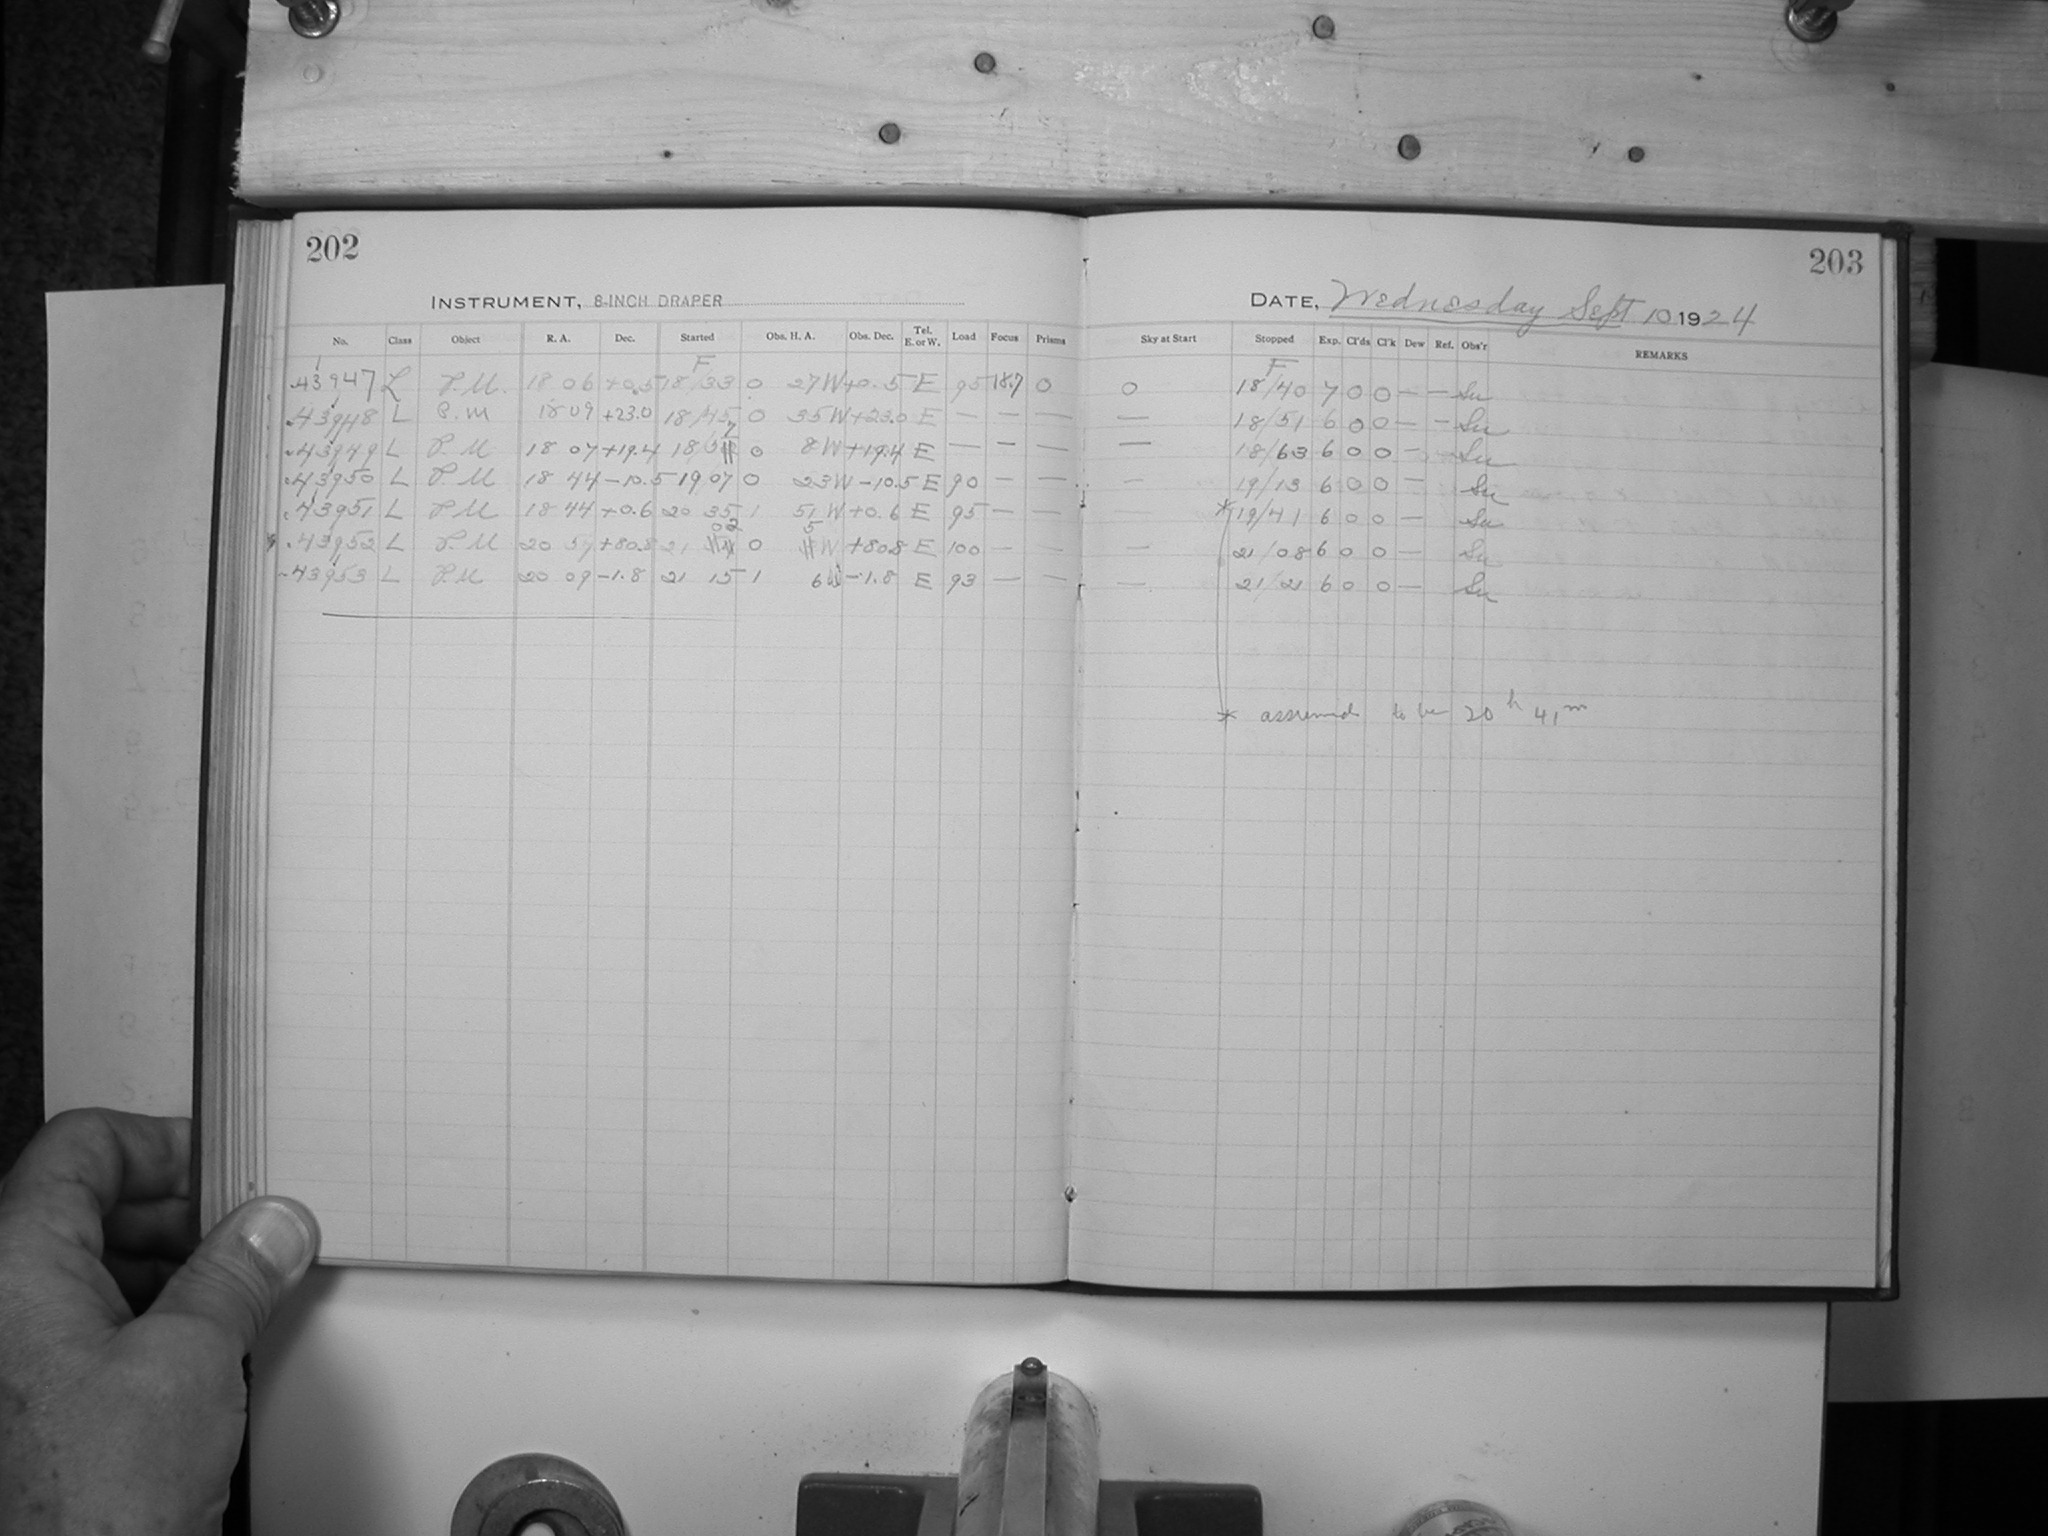 202
203
INSTRUMENT, 8-INCH DRAPER
DATE, Wednesday Sept 10 1924
No. Class Object R. A. Dec. Started Obs. H. A. Obs. Dec. Tel. E. or W. Load Focus Prisms Sky at Start Stopped Exp. Cl'ds Cl'k Dew Ref. Obs'r REMARKS
F F
43947 L P.M. 18 06 +0.5 18/33 0 27W +0.5 E 95 18.7 0 0 18/40 7 0 0 — — Su
43948 L P.M 18 09 +23.0 18/45 0 35W +23.0 E — — — — 18/51 6 0 0 — — Su
43949 L P.M 18 07 +19.4 18/57 0 8W +19.4 E — — — — 18/63 6 0 0 — Su
43950 L P.M 18 44 -10.5 19 07 0 23W -10.5 E 90 — — — 19/13 6 0 0 — Su
43951 L P.M 18 44 +0.6 20 35 1 51W +0.6 E 95 — — * 19/41 6 0 0 — Su
43952 L P.M 20 57 +80.8 21 02 0 5W +80.8 E 100 — — — 21/08 6 0 0 — Su
43953 L P.M 20 09 -1.8 21 15 1 6W -1.8 E 93 — — — 21/21 6 0 0 — Su
* assumed to be 20h 41m